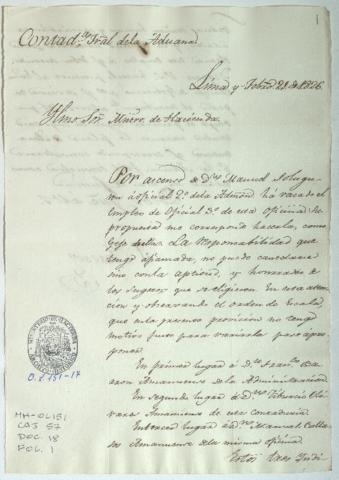 1
Contad.ª Gral dela Aduana.
Lima y Febr.º 28 de 1826.
Ylmo Sor Mntro. de Hacienda.
Por ascenso de D.n Manuel
á oficial 2.º dela Admon há vacado el
empleo de Oficial 3.º de esta oficina. Su
propuesta me corresponde hacerla, como
Gefe de ella. La responsabilidad que
tengo afianzada, no puedo
sino con la aptitud, y honradez de
los sugetos que se eligieren. En esta aten-
cion y observando el orden de Escala,
que esta presente provision no tengo
motivo justo para variarla paso á pro-
poner.
En primer lugar á D.n Fran.co
Amanuense de la Administracion
En segundo lugar á D.n Tiburcio
Amanuense de esta contaduria
En tercer lugar á D.n Manuel
Amanuense dela misma oficina
Estos tres Yndi-
O.L. 151-17
MH-OL151
CAJ 57
DOC. 18
FOL. 1